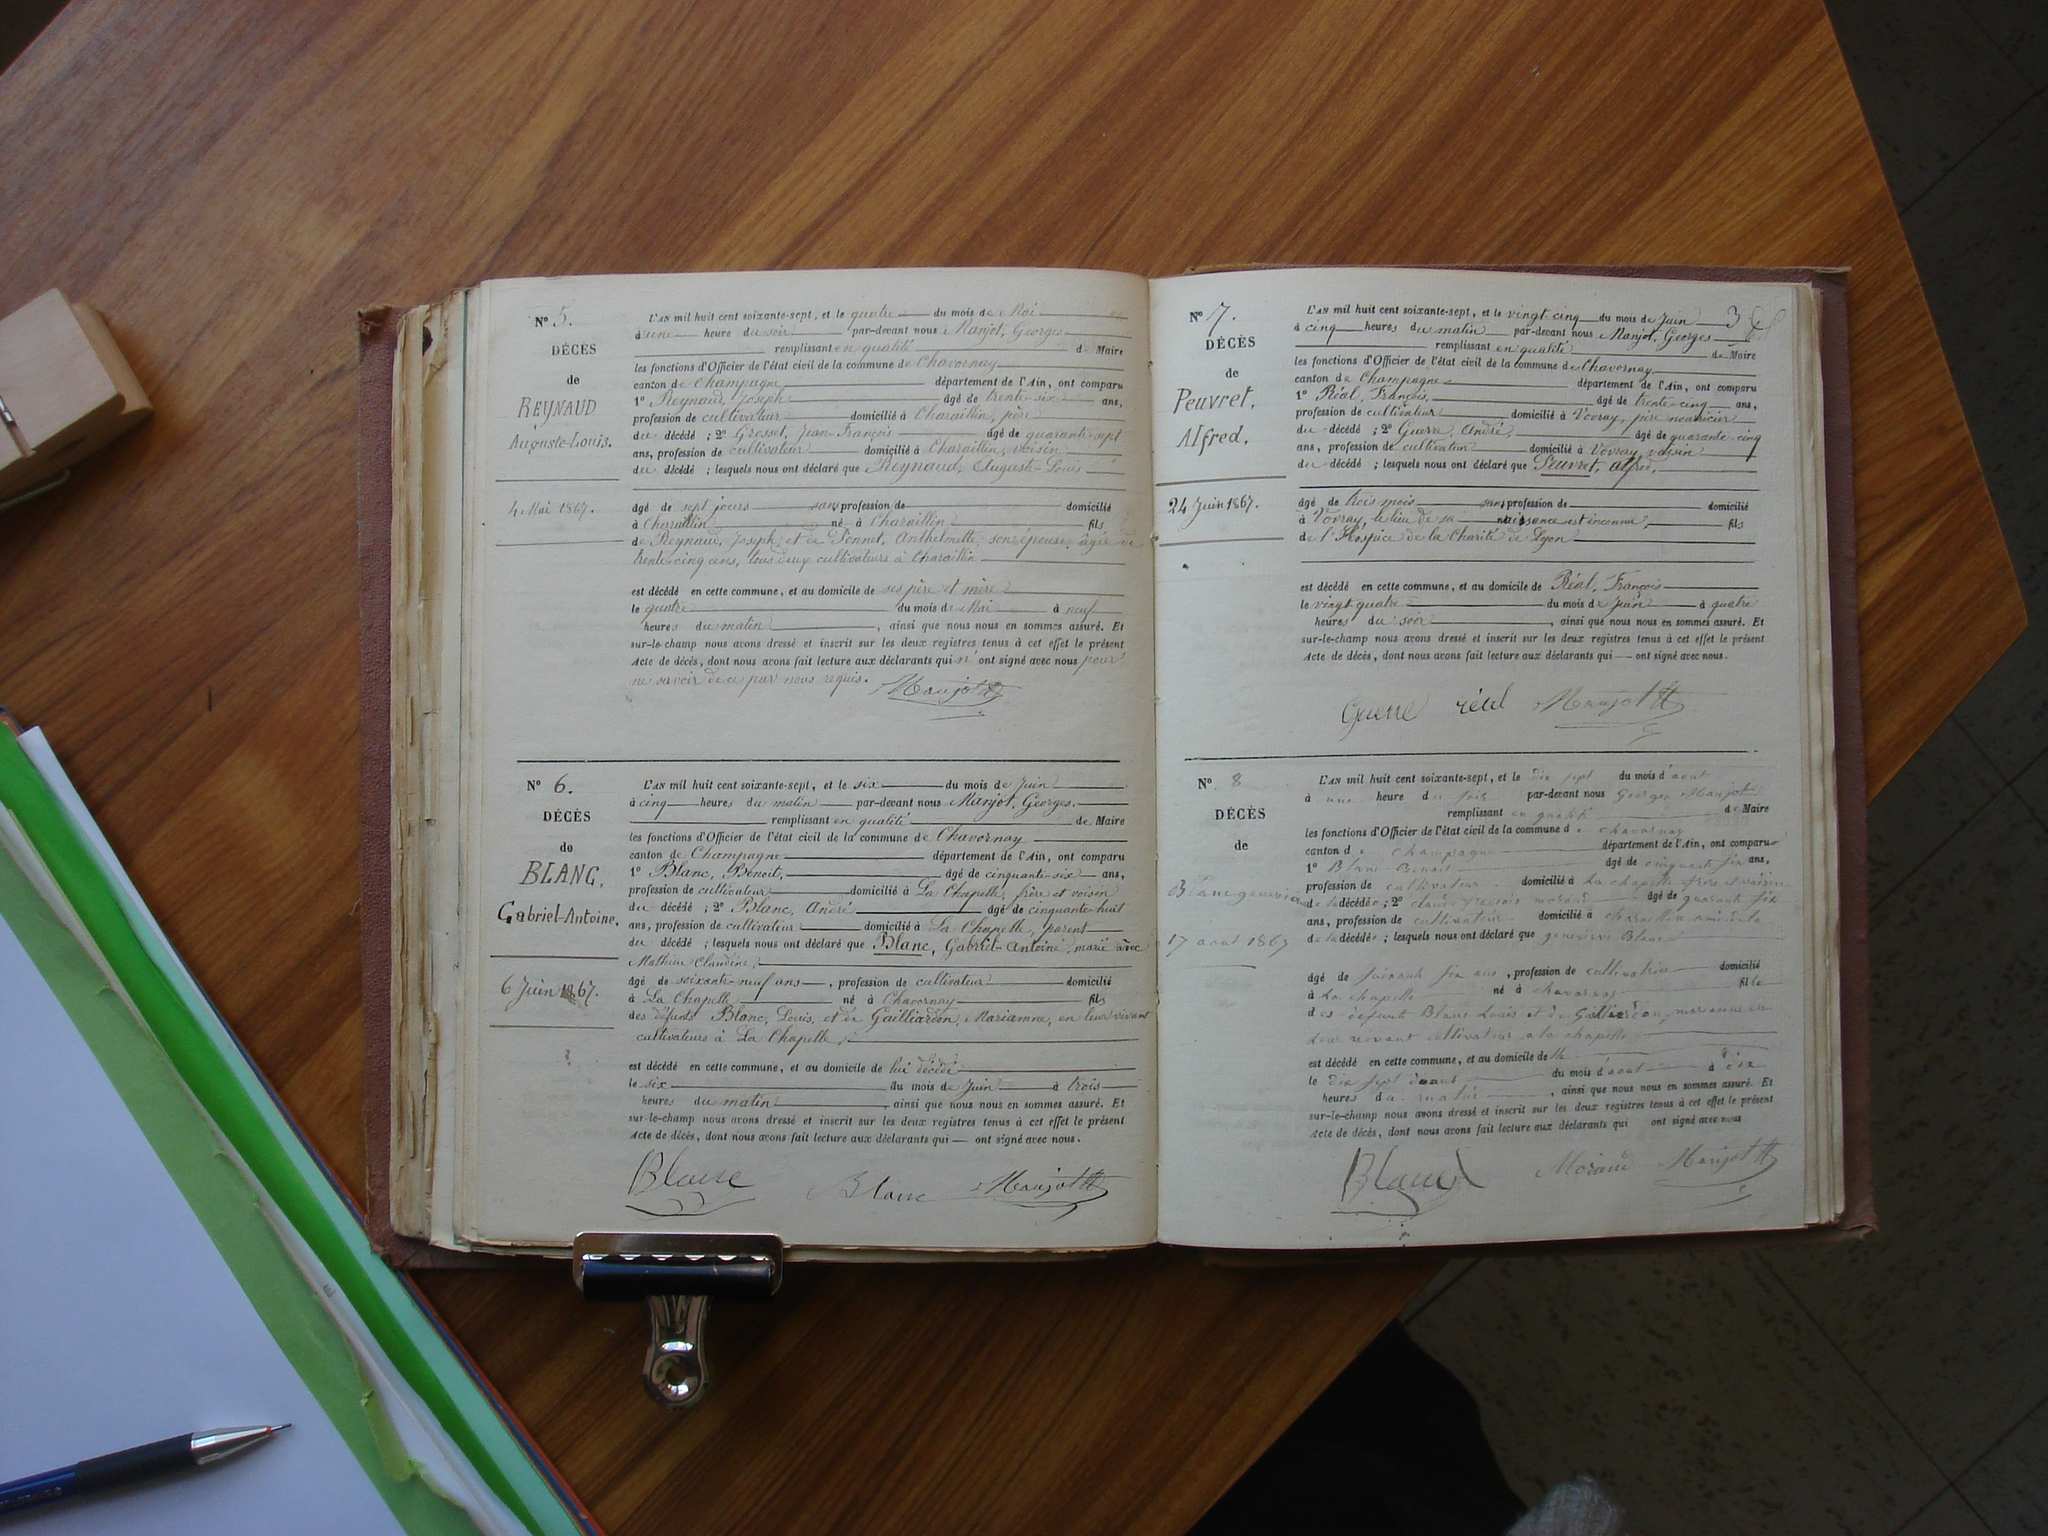 N° 5.
DÉCÈS
de
REYNAUD
Auguste-Louis.
4 Mai 1867.
L'AN mil huit cent soixante-sept, et le quatre du mois de Mai
à une heure du soir par-devant nous Manjot, Georges
remplissant en qualité de Maire
les fonctions d'Officier de l'état civil de la commune de Chavornay
canton de Champagne département de l'Ain, ont comparu
1° Reynaud, Joseph âgé de trente-six ans,
profession de cultivateur domicilié à Charaillin, père
du décédé ; 2° Grosset, Jean-François âgé de quarante-sept
ans, profession de cultivateur domicilié à Charaillin, voisin
du décédé ; lesquels nous ont déclaré que Reynaud, Auguste-Louis
âgé de sept jours sans profession de domicilié
à Charaillin né à Charaillin fils
de Reynaud, Joseph et de Ponnet, Anthelmette, son épouse, âgée de
trente-cinq ans, tous deux cultivateurs à Charaillin
est décédé en cette commune, et au domicile de ses père et mère
le quatre du mois de Mai à neuf
heures du matin, ainsi que nous nous en sommes assuré. Et
sur-le-champ nous avons dressé et inscrit sur les deux registres tenus à cet effet le présent
acte de décès, dont nous avons fait lecture aux déclarants qui n'ont signé avec nous pour
ne savoir de ce par nous requis.
Manjot
N° 6.
DÉCÈS
de
BLANC,
Gabriel-Antoine.
6 Juin 1867.
L'AN mil huit cent soixante-sept, et le six du mois de Juin
à cinq heures du matin par-devant nous Manjot, Georges.
remplissant en qualité de Maire
les fonctions d'Officier de l'état civil de la commune de Chavornay
canton de Champagne département de l'Ain, ont comparu
1° Blanc, Benoit, âgé de cinquante-six ans,
profession de cultivateur domicilié à La Chapelle, frère et voisin
du décédé ; 2° Blanc, André âgé de cinquante-huit
ans, profession de cultivateur domicilié à La Chapelle, parent
du décédé ; lesquels nous ont déclaré que Blanc, Gabriel-Antoine, marié avec
Mathieu Claudine,
âgé de soixante-neuf ans, profession de cultivateur domicilié
à La Chapelle né à Chavornay fils
des défunts Blanc, Louis, et de Gailliardon, Marianne, en leur vivant
cultivateurs à La Chapelle,
est décédé en cette commune, et au domicile de lui décédé
le six du mois de Juin à trois
heures du matin, ainsi que nous nous en sommes assuré. Et
sur-le-champ nous avons dressé et inscrit sur les deux registres tenus à cet effet le présent
acte de décès, dont nous avons fait lecture aux déclarants qui ont signé avec nous.
Blanc Blanc Manjot
N° 7.
DÉCÈS
de
Peuvret,
Alfred.
24 Juin 1867.
L'AN mil huit cent soixante-sept, et le vingt cinq du mois de Juin 3
à cinq heures du matin par-devant nous Manjot, Georges
remplissant en qualité de Maire
les fonctions d'Officier de l'état civil de la commune de Chavornay
canton de Champagne département de l'Ain, ont comparu
1° Réal, François, âgé de trente-cinq ans,
profession de cultivateur domicilié à Vovray, père nourricier
du décédé ; 2° Guerre, André, âgé de quarante-cinq
ans, profession de cultivateur domicilié à Vovray, voisin
du décédé ; lesquels nous ont déclaré que Peuvret, alfred,
âgé de trois mois sans profession de domicilié
à Vovray, le lieu de sa naissance est inconnu, fils
de l'Hospice de la Charité de Lyon
est décédé en cette commune, et au domicile de Réal, François
le vingt quatre du mois de Juin à quatre
heures du soir, ainsi que nous nous en sommes assuré. Et
sur-le-champ nous avons dressé et inscrit sur les deux registres tenus à cet effet le présent
acte de décès, dont nous avons fait lecture aux déclarants qui ont signé avec nous.
Guerre réal Manjot
N° 8
DÉCÈS
de
Blanc genevieve
17 aout 1867
L'AN mil huit cent soixante-sept, et le dix sept du mois d'aout
à une heure du soir par-devant nous georges Manjot
remplissant en qualité de Maire
les fonctions d'Officier de l'état civil de la commune de chavornay
canton de champagne département de l'Ain, ont comparu
1° Blanc Benoit âgé de cinquante six ans,
profession de cultivateur domicilié à La chapelle frère et voisin
de la décédée ; 2° claude françois morand âgé de quarante six
ans, profession de cultivateur domicilié à charaillin ami de la
de la décédé ; lesquels nous ont déclaré que genevieve Blanc
âgé de soixante six ans, profession de cultivatrice domicilié
à La chapelle né à chavornay fille
des defunt Blanc Louis et de Gailliardon, marianne en
leur vivant cultivateur a la chapelle
est décédé en cette commune, et au domicile de
le dix sept aout du mois d'aout à dix
heures du matin, ainsi que nous nous en sommes assuré. Et
sur-le-champ nous avons dressé et inscrit sur les deux registres tenus à cet effet le présent
acte de décès, dont nous avons fait lecture aux déclarants qui ont signé avec nous
Blanc Morand Manjot